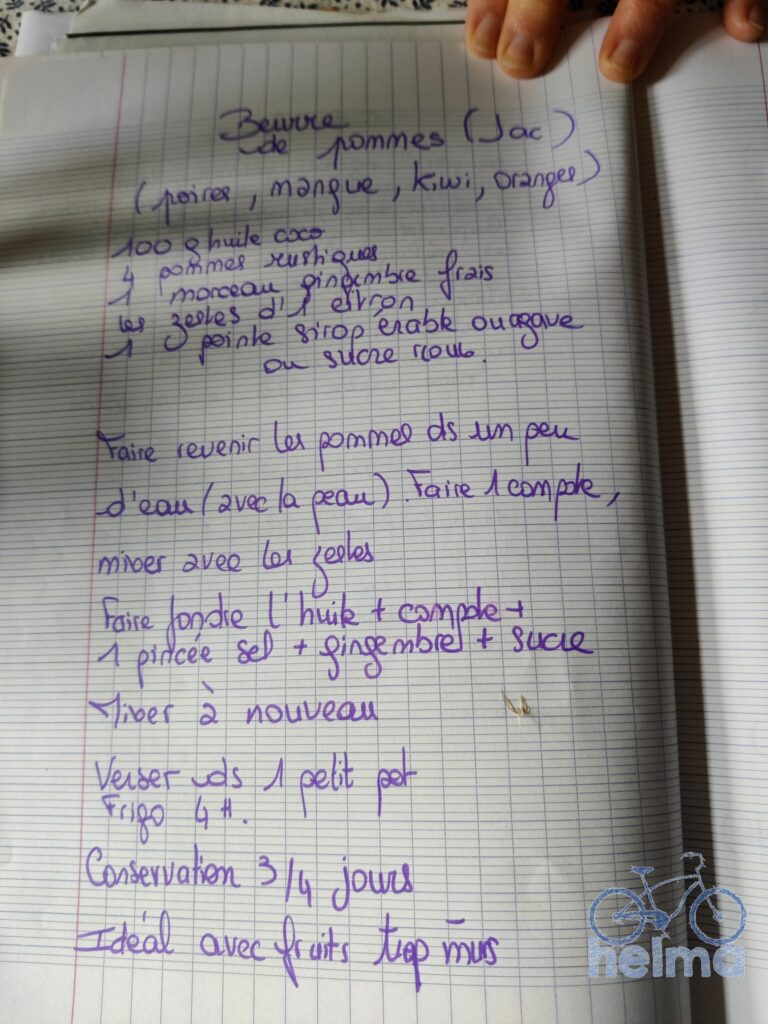 Beurre
de pommes (Jac)
(poires, mangue, kiwi, oranges)
100 g huile coco
4 pommes rustiques
1 morceau gingembre frais
les zestes d'1 citron
1 pointe sirop érable ou agave
ou sucre roux.
Faire revenir les pommes ds un peu
d'eau (avec la peau). Faire 1 compote,
mixer avec les zestes
Faire fondre l'huile + compote +
1 pincée sel + gingembre + sucre
Mixer à nouveau
Verser ds 1 petit pot
Frigo 4 H.
Conservation 3/4 jours
Idéal avec fruits trop mûrs
helma